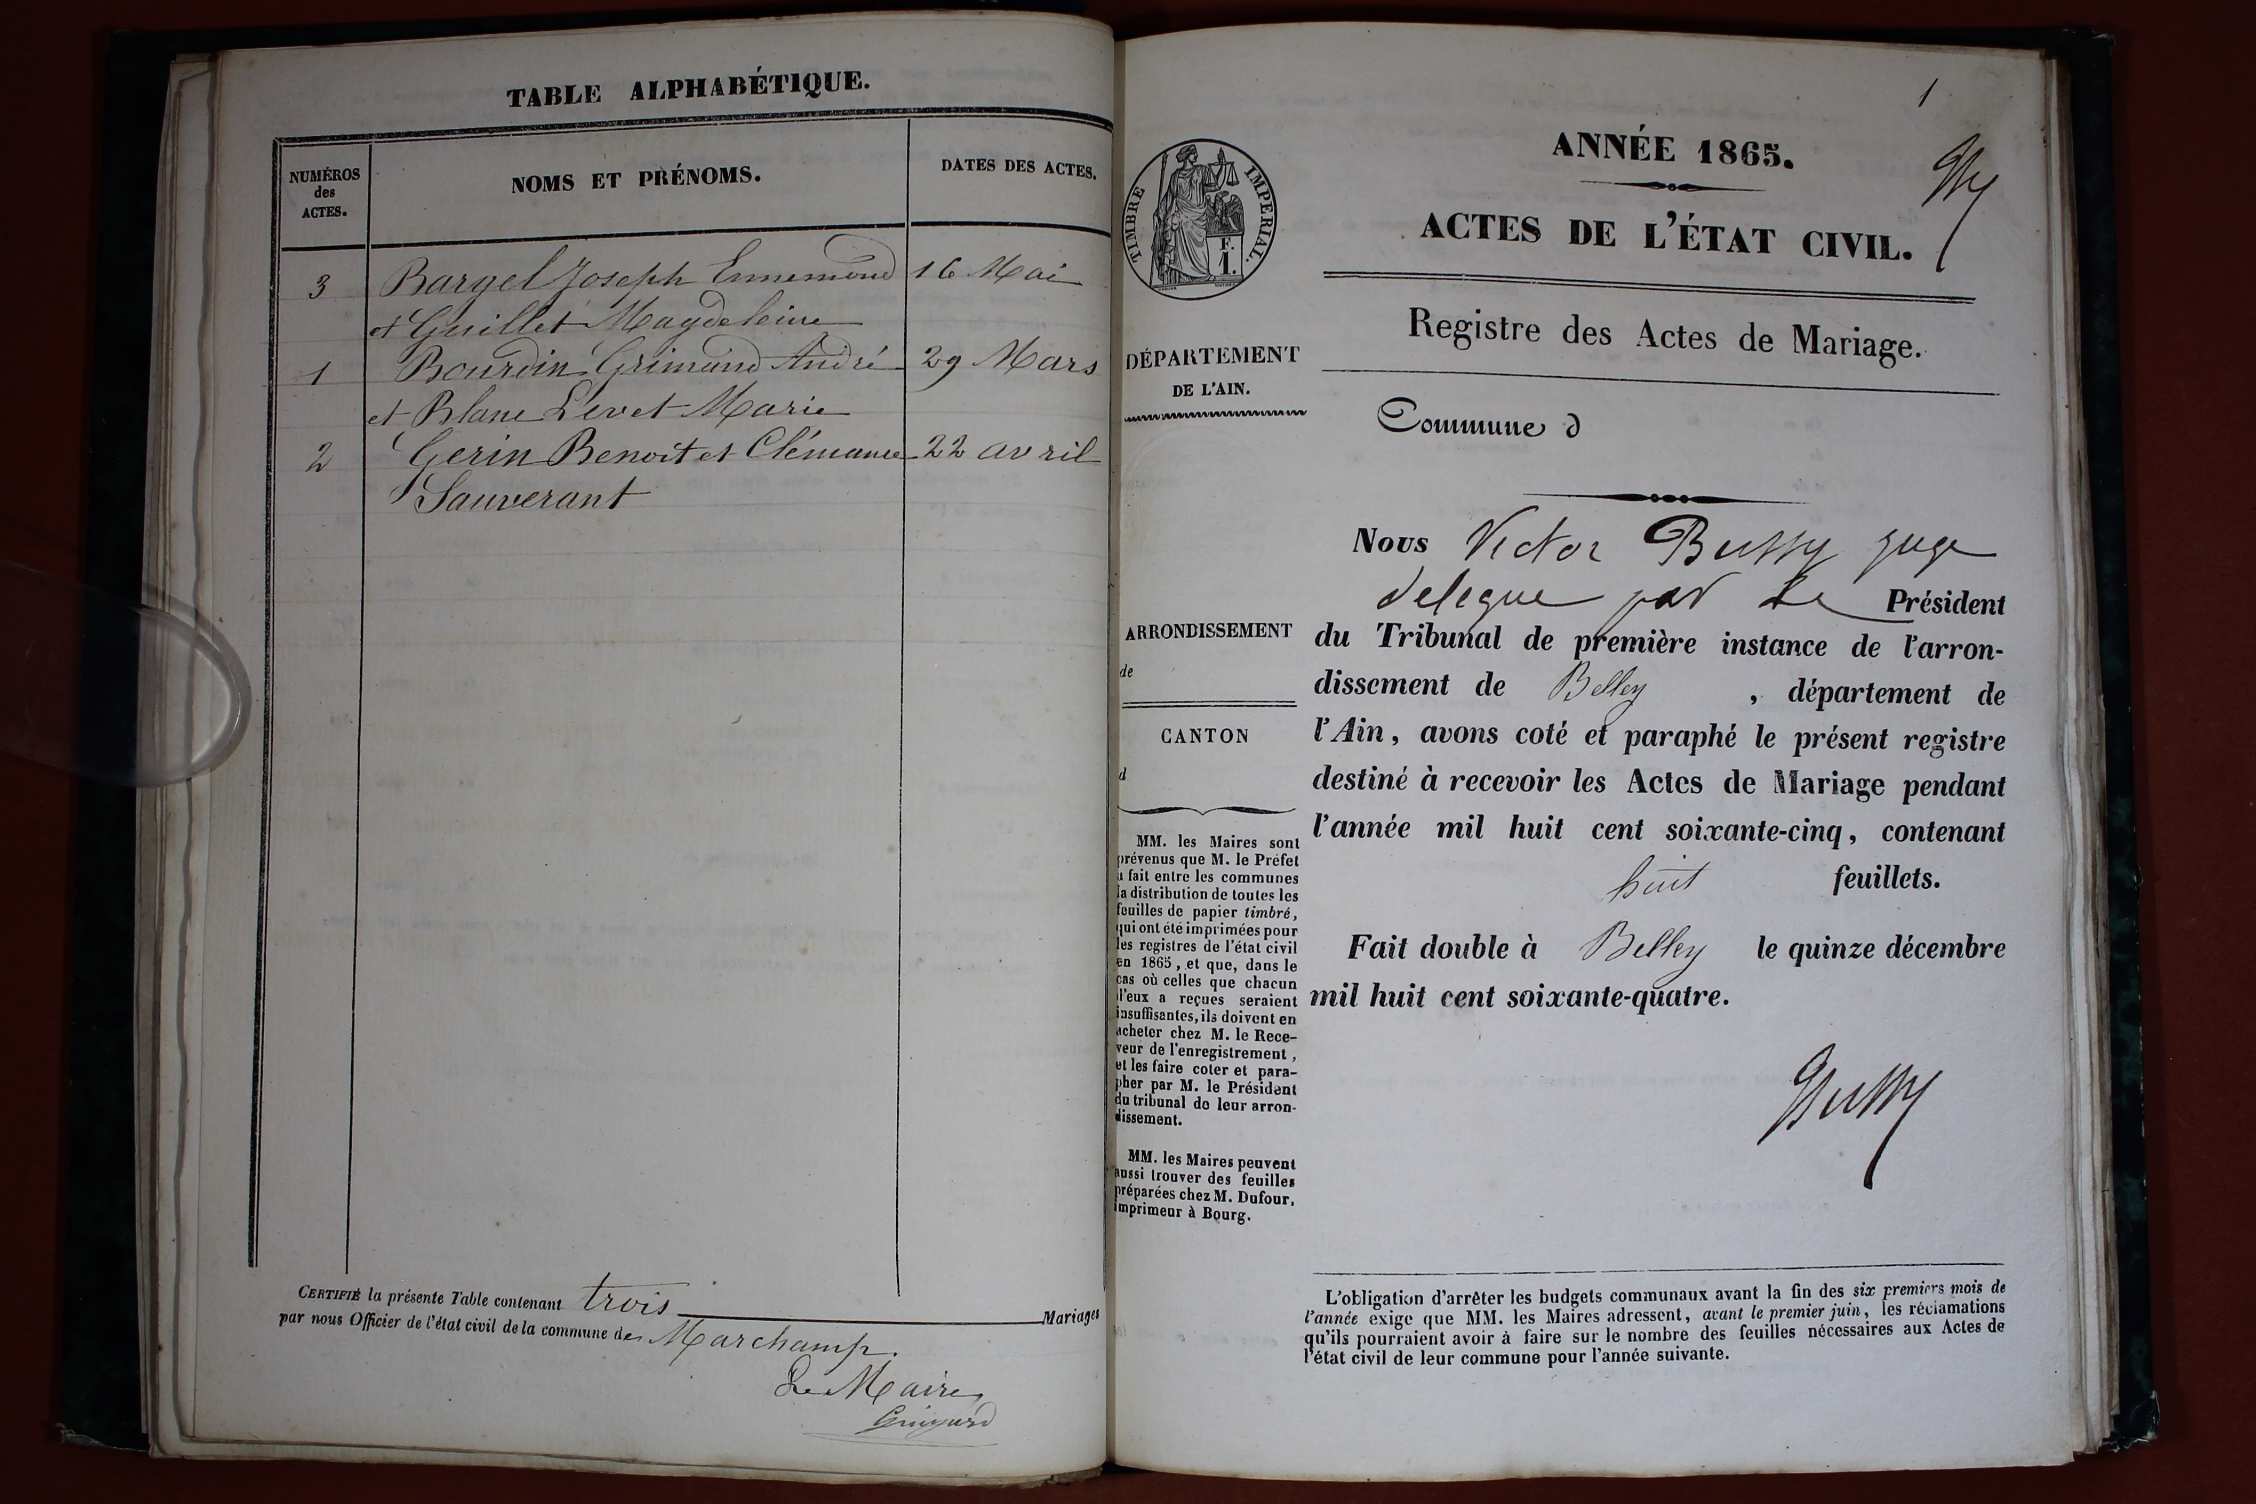 TABLE ALPHABÉTIQUE.
NUMÉROS
des
ACTES.
NOMS ET PRÉNOMS.
DATES DES ACTES.
3 Bargel Joseph Ennemond 16 Mai
et Guillet Magdeleine
1 Bourdin Grimaud André 29 Mars
et Blanc Levet Marie
2 Gerin Benoit et Clémance 22 avril
Sauverant
CERTIFIÉ la présente Table contenant trois Mariages
par nous Officier de l'état civil de la commune de Marchamp.
Le Maire
Guigard
1
TIMBRE IMPERIAL.
F.
1.
DÉPARTEMENT
DE L'AIN.
ARRONDISSEMENT
de
CANTON
d
MM. les Maires sont
prévenus que M. le Préfet
a fait entre les communes
la distribution de toutes les
feuilles de papier timbré,
qui ont été imprimées pour
les registres de l'état civil
en 1865, et que, dans le
cas où celles que chacun
d'eux a reçues seraient
insuffisantes, ils doivent en
acheter chez M. le Rece-
veur de l'enregistrement,
et les faire coter et para-
pher par M. le Président
du tribunal de leur arron-
dissement.
MM. les Maires peuvent
aussi trouver des feuilles
préparées chez M. Dufour,
imprimeur à Bourg.
ANNÉE 1865.
ACTES DE L'ÉTAT CIVIL.
Registre des Actes de Mariage.
Commune d
Nous Victor Bussy juge
delegue par Le Président
du Tribunal de première instance de l'arron-
dissement de Belley, département de
l'Ain, avons coté et paraphé le présent registre
destiné à recevoir les Actes de Mariage pendant
l'année mil huit cent soixante-cinq, contenant
huit feuillets.
Fait double à Belley le quinze décembre
mil huit cent soixante-quatre.
Bussy
L'obligation d'arrêter les budgets communaux avant la fin des six premiers mois de
l'année exige que MM. les Maires adressent, avant le premier juin, les réclamations
qu'ils pourraient avoir à faire sur le nombre des feuilles nécessaires aux Actes de
l'état civil de leur commune pour l'année suivante.